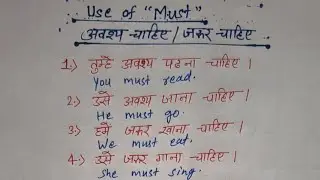 Use of "Must"
अवश्य चाहिए / जरूर चाहिए
1.) तुम्हें अवश्य पढ़ना चाहिए ।
You must read.
2.) उसे अवश्य जाना चाहिए ।
He must go.
3.) हमें जरूर खाना चाहिए ।
We must eat.
4.) उसे जरूर गाना चाहिए ।
She must sing.